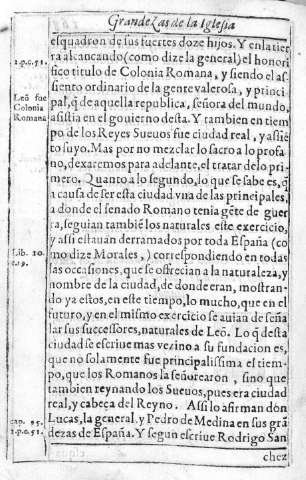 Grandezas de la Iglesia
esquadron de sus fuertes doze hijos. Y en la tie-
ra alcançando (como dize la general) el honori
fico titulo de Colonia Romana, y siendo el as-
siento ordinario de la gente valerosa, y princi-
pal, q̃ de aquella republica, señora del mundo,
assistia en el gouierno desta. Y tambien en tiem
po de los Reyes Sueuos fue ciudad real, y assiẽ
to suyo. Mas por no mezclar lo sacro a lo profa
no, dexaremos para adelante, el tratar de lo pri-
mero. Quanto a lo segundo, lo que se sabe es, q̃
a causa de ser esta ciudad vna de las principales,
a donde el senado Romano tenia gẽte de guer
ra, seguian tambiẽ los naturales este exercicio,
y assi estauan derramados por toda España (co
mo dize Morales,) correspondiendo en todas
las occasiones, que se ofrecian a la naturaleza, y
nombre de la ciudad, de donde eran, mostran-
do ya estos, en este tiempo, lo mucho, que en el
futuro, y en el mismo exercicio se auian de seña
lar sus successores, naturales de Leõ. Lo q̃ desta
ciudad se escriue mas vezino a su fundacion es,
que no solamente fue principalissima el tiem-
po, que los Romanos la señorearon, sino que
tambien reynando los Sueuos, pues era ciudad
real, y cabeça del Reyno. Assi lo afirman dõ
Lucas, la general, y Pedro de Medina en sus grã
dezas de España. Y segun escriue Rodrigo San
chez
1.p.c.51.
Leõ fue
Colonia
Romana
Lib. 10.
c.19.
cap. 95.
1.p.c.51.